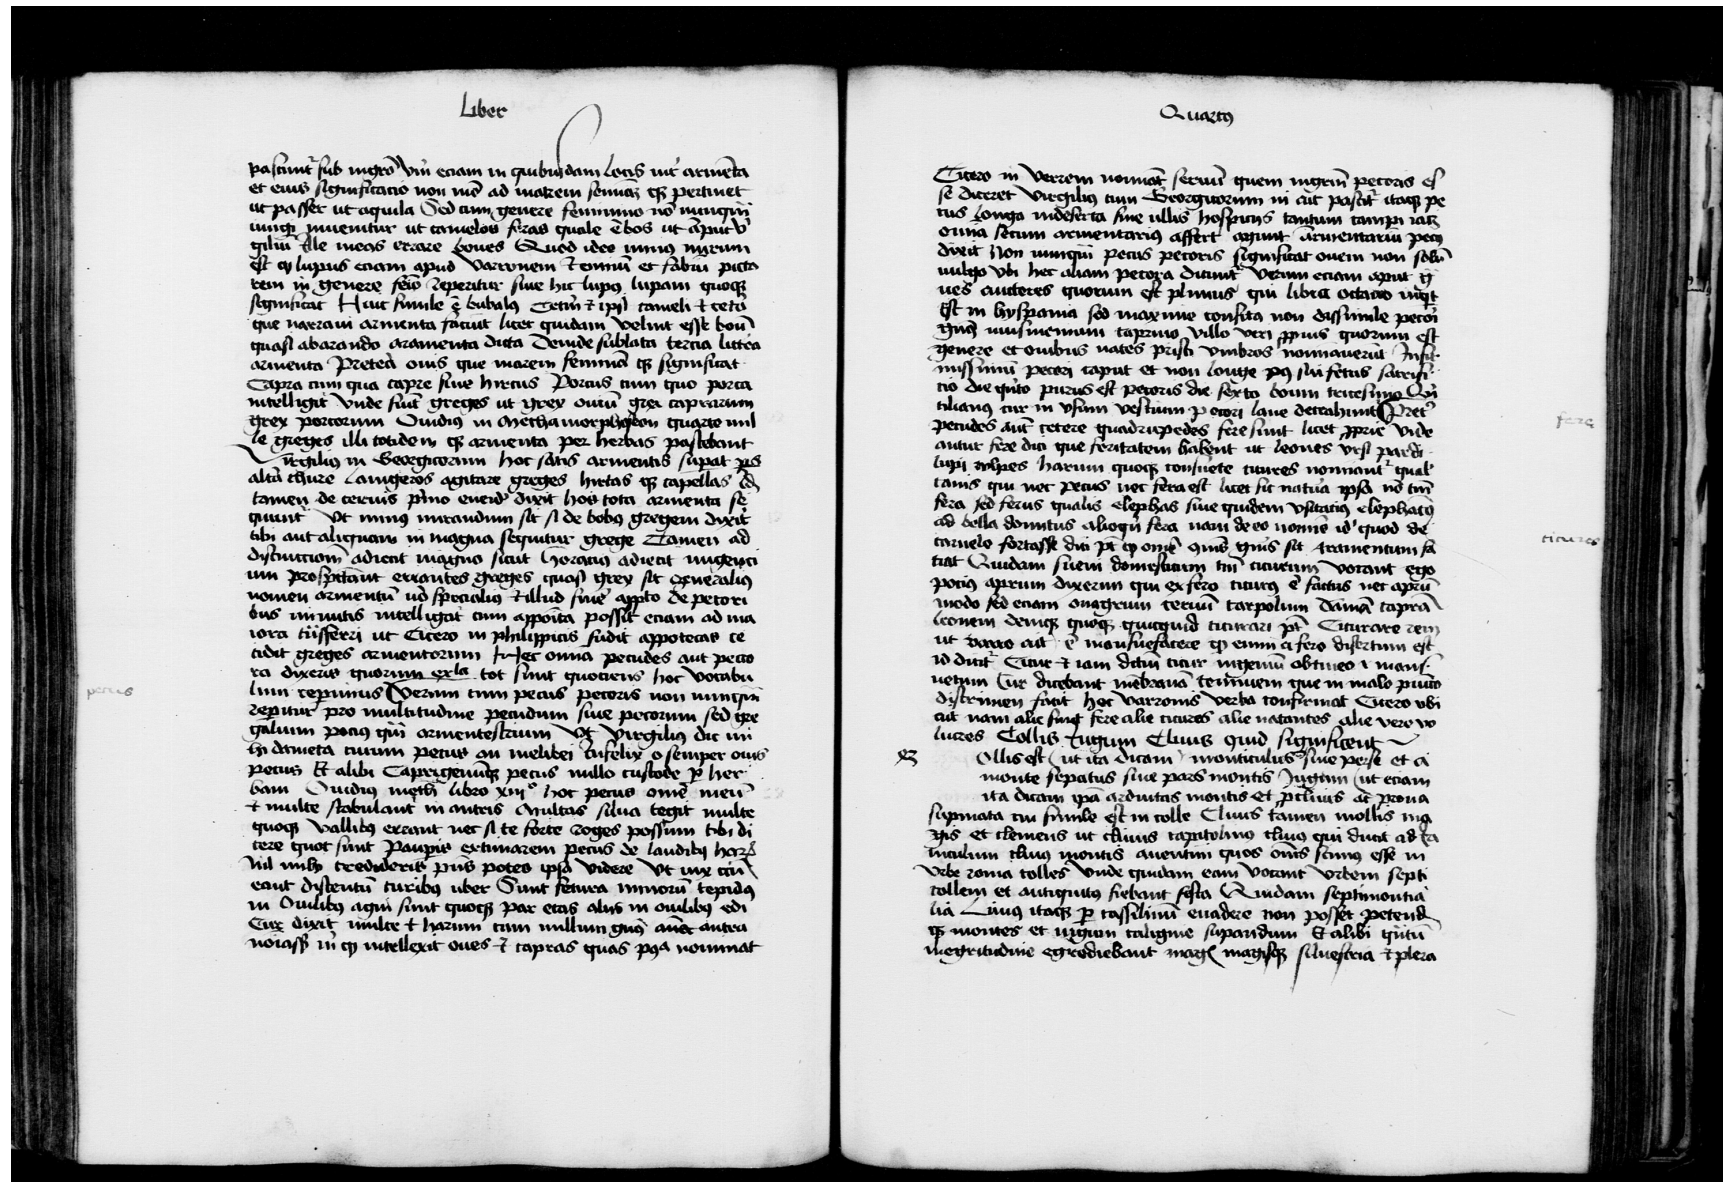 Liber
pascunt͛ sub nigro Vn̄ eciam in quibusdam locis nīt armēta
et eius significatio non mō ad marem feminā qꝫ pertinet
ut passer ut aquila Sed cum genere feminino nō nunqm̄
iungi inuenitur ut camelos feras quale ē bos ut apud v̓
giliū Ille meas errare boues Quod ideo minus mirum
est qꝫ lupus eciam apud varronem ⁊ enniū et fabiū picto
rem in genere feīo reperitur siue hic lupꝰ lupam quoqꝫ
significat Huic simile ē bubalus Cetm̄ ⁊ ipsi cameli ⁊ cetera
que narraui armenta faciūt licet quidam velint esse boū
quasi abarando aramenta dicta Deinde sublata tercia littera
armenta Preterea ouis que marem feminā qꝫ significat
Capra cum qua capre siue hircus Porcus cum quo porca
intelligit͛ Vnde sūt greges ut grex ouiū grex caprarum
grex porcorum Ouidius in Methamorphoseon quarto mil
le greges illi totidem qꝫ armenta per herbas pascebant
Virgilius in Georgicorum hoc satis armentis supat ps
alta cure lanigeros agitare greges hirtas qꝫ capellas Idem
tamen de ceruis prīo eneid̓ dixit hos tota armenta se
quunt͛ Vt minus mirandum sit si de bobus gregem dixit
tibi aut aliquam in magna sequitur grege Tamen ad
distinctionem adiecit magno sicut Horacius adiecit mugienti
um prospectant errantes greges quasi grex sit generalius
nomen armentū ud specialius ⁊ illud siue apposito de pecori
bus minutis intelligat͛ cum apposita possit eciam ad ma
iora tn̄sferri ut Cicero in philippicis fudit appotecas ce
cidit greges armentorum Nec omnia pecudes aut peco
ra dixeris quorum expla tot sunt quociens hoc vocabu
lum reperimus Verum cum pecus pecoris non nunqm̄
reperitur pro multitudine pecudum siue pecorum sed gre
galium pocius qm̄ armentestrium Vt Virgilius dic mi
hi dameta cuium pecus an melibei Infelix o semper ouis
pecus Et alibi Caprigenumqꝫ pecus nullo custode p̄ her
bam Ouidius meth̄ libro xiiiº hoc pecus omē meū
⁊ multe stabulant in antris Multas silua tegit multe
quoqꝫ vallibus errant nec si te forte roges possum tibi di
cere quot sunt Pauperis est numerare pecus de laudibus harū
Nil mihi credideris prīs potes ipsa videre Vt uix circū
eant distentū curibus uber Sunt fetura minorum tepidis
in Ouilibus agni sunt quoqꝫ par etas aliis in ouilibus edi
Cur dixit multe ⁊ harum cum nullum genus ante antea
noīasset nī qꝫ intellexit oues ⁊ capras quas postea nominat
pecus
Quartꝰ
Cicero in Verrem nominat seruū quem nigrm̄ pecoris es
se diceret Virgilius cum Georgicorum in ait pascit͛ itaqꝫ pe
cus longa indeserta sine ullis hospiciis tantum campi iacꝫ
omnia secum armentarius affert agunt Armentariū pecꝰ
dixit Non nunqm̄ pecus pecoris significat ouem non solū
uulgo vbi hec aliam pecora dicunt͛ Verum eciam apud g̓
ues auctores quorum est plinius qui libro octauo inqt
Est in hyspania sed maxime corsica non dissimile pecori
genus musmenum caprino villo veri pprius quorum est
genere et ouibus nates prisci vmbros nominauerūt Infir
missimū pecori caput et non longe post sui fetus sacrifi
cio die qn̄to purus est pecoris die sexto bouum tricesimo Qn̄
tilianus cur in vsum vestium pecori lane detrahunt Pret̓
pecudes aut̄ cetere quadrupedes fere sunt licet pprie vide
antur fere dici que feritatem habent ut leones vrsi pardi
lupi vulpes harum quoqꝫ consuete cicures nominant͛ qual
canis qui nec pecus nec fera est licet sit natura ipsa nō tm̄
fera sed ferus qualis elephas siue quidem vsitatius elephatꝰ
ad bella domitus alioqn̄ fera nam de eo nomine id quod de
camelo fortasse dici pt̄ qꝫ omīs genus sit armentum fa
ciat Quidam suem domesticum tm̄ cicurem vocant ego
pocius aprum dixerim qui ex fero cicurꝰ ē factus nec aprū
modo sed eciam onagrum ceruū carpolum Damā caprā
leonem deniqꝫ quoqꝫ quicquid cicurari pt̄ Cicurare rem
ut varro ait ē mansuefacere qꝫ enim a fero discretum est
id dicit͛ Cicur ⁊ iam dictū cicur ingeniū obtineo ⁊ mans
uetum Cur dicebant mēbranā tenuem que in malo punico
discrimen facit hec varronis verba confirmat Cicero vbi
ait nam alie sunt fere alie cicures alie natantes alie vero vo
lucres Collis Iugum Cliuus Quid significent
Ollis est (ut ita dicam) monticulus siue perse et a
monte sepatus siue pars montis Iugum (ut eciam
ita dicam ipā arduitas montis et pcliuis ac prona
supinata cui simile est in colle Cliuus tamen mollis ma
gis et clemens ut cliuus capitolinus cliuus qui ducit ad Ia
niculum cliuus montis auentini quos omīs scimus esse in
Vrbe roma colles Vnde quidam eam vocant vrbem septi
collem et antiquitus fiebant festa Quidam septimontia
lia Liuius itaqꝫ p̄ cassilinū euadere non posset petendos
qꝫ montes et iugum caligine superandum Et alibi qn̄tū
inegritudine egrediebant mag̓ magisqꝫ siluestria ⁊ plera
fere
cicures